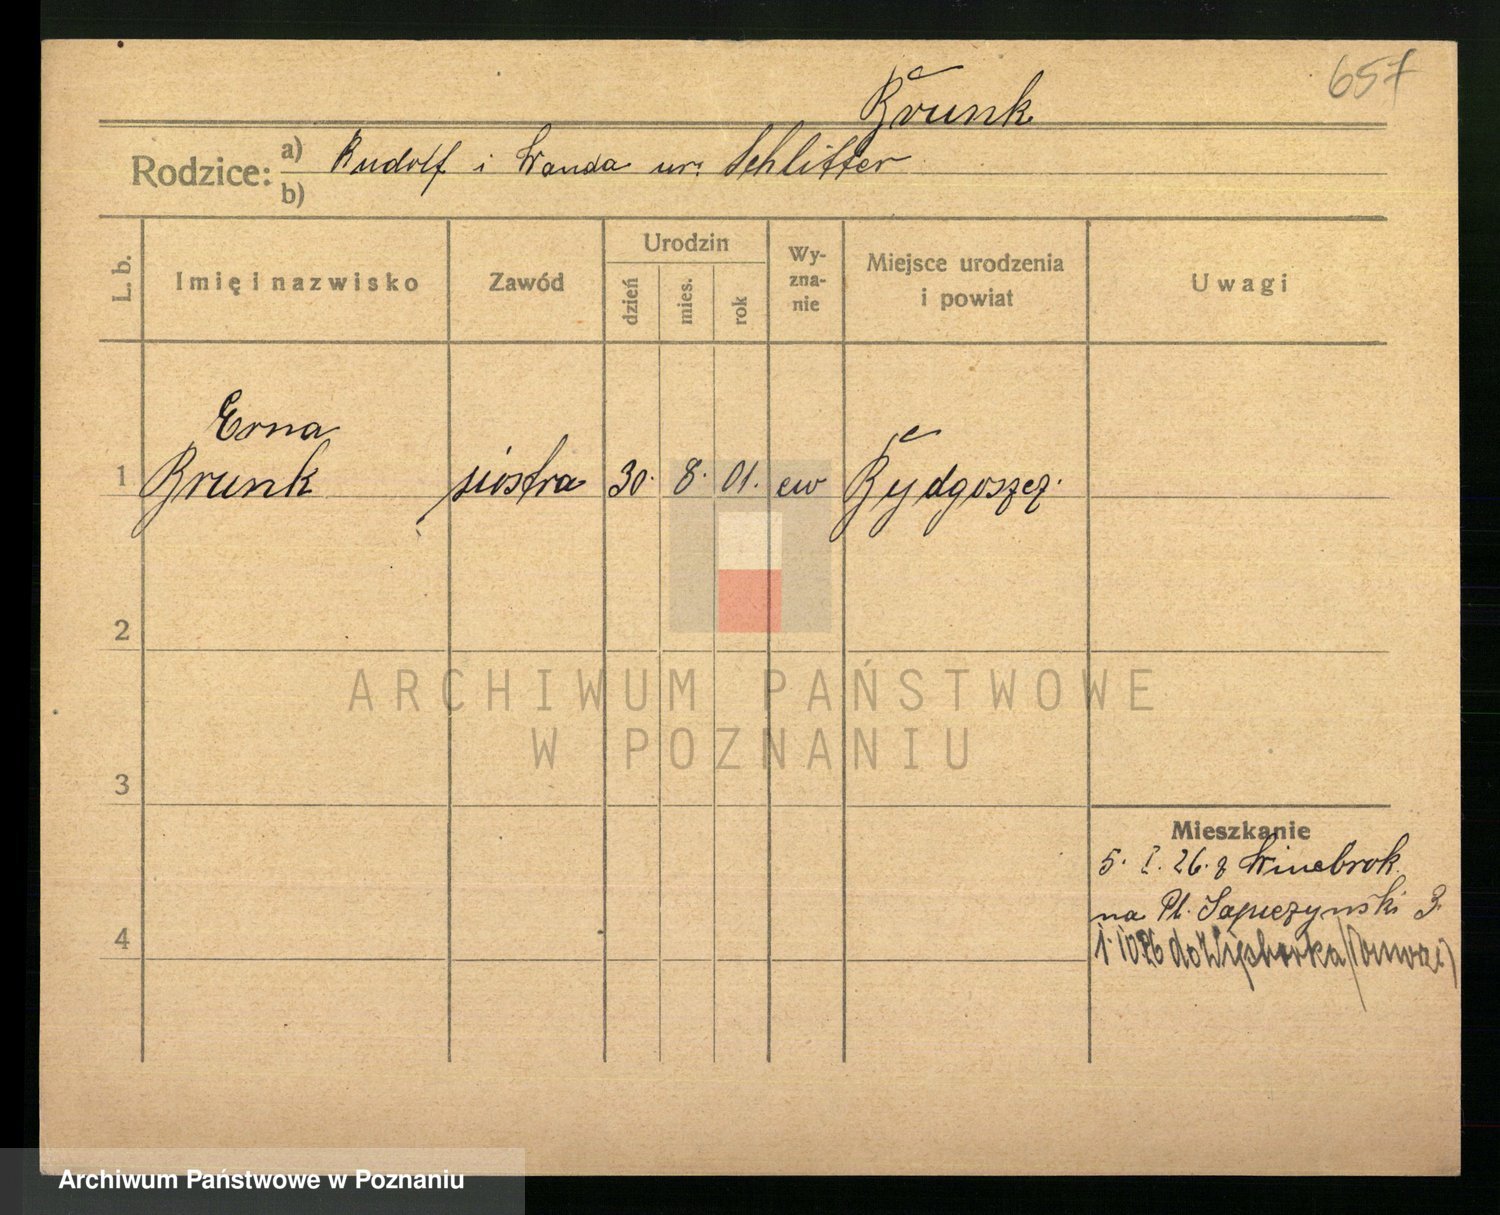 657
Brunk
Rodzice: a) Rudolf i Wanda ur. Schlitter
b)
L. b. Imię i nazwisko Zawód Urodzin dzień mies. rok Wyznanie Miejsce urodzenia i powiat Uwagi
Erna
1 Brunk siostra 30. 8. 01. ew Bydgoszcz.
2
ARCHIWUM PAŃSTWOWE
W POZNANIU
3
Mieszkanie
5. I. 26. z Winebrok
na Pl. Sapieżynski 3
4
do Więcborka
Archiwum Państwowe w Poznaniu